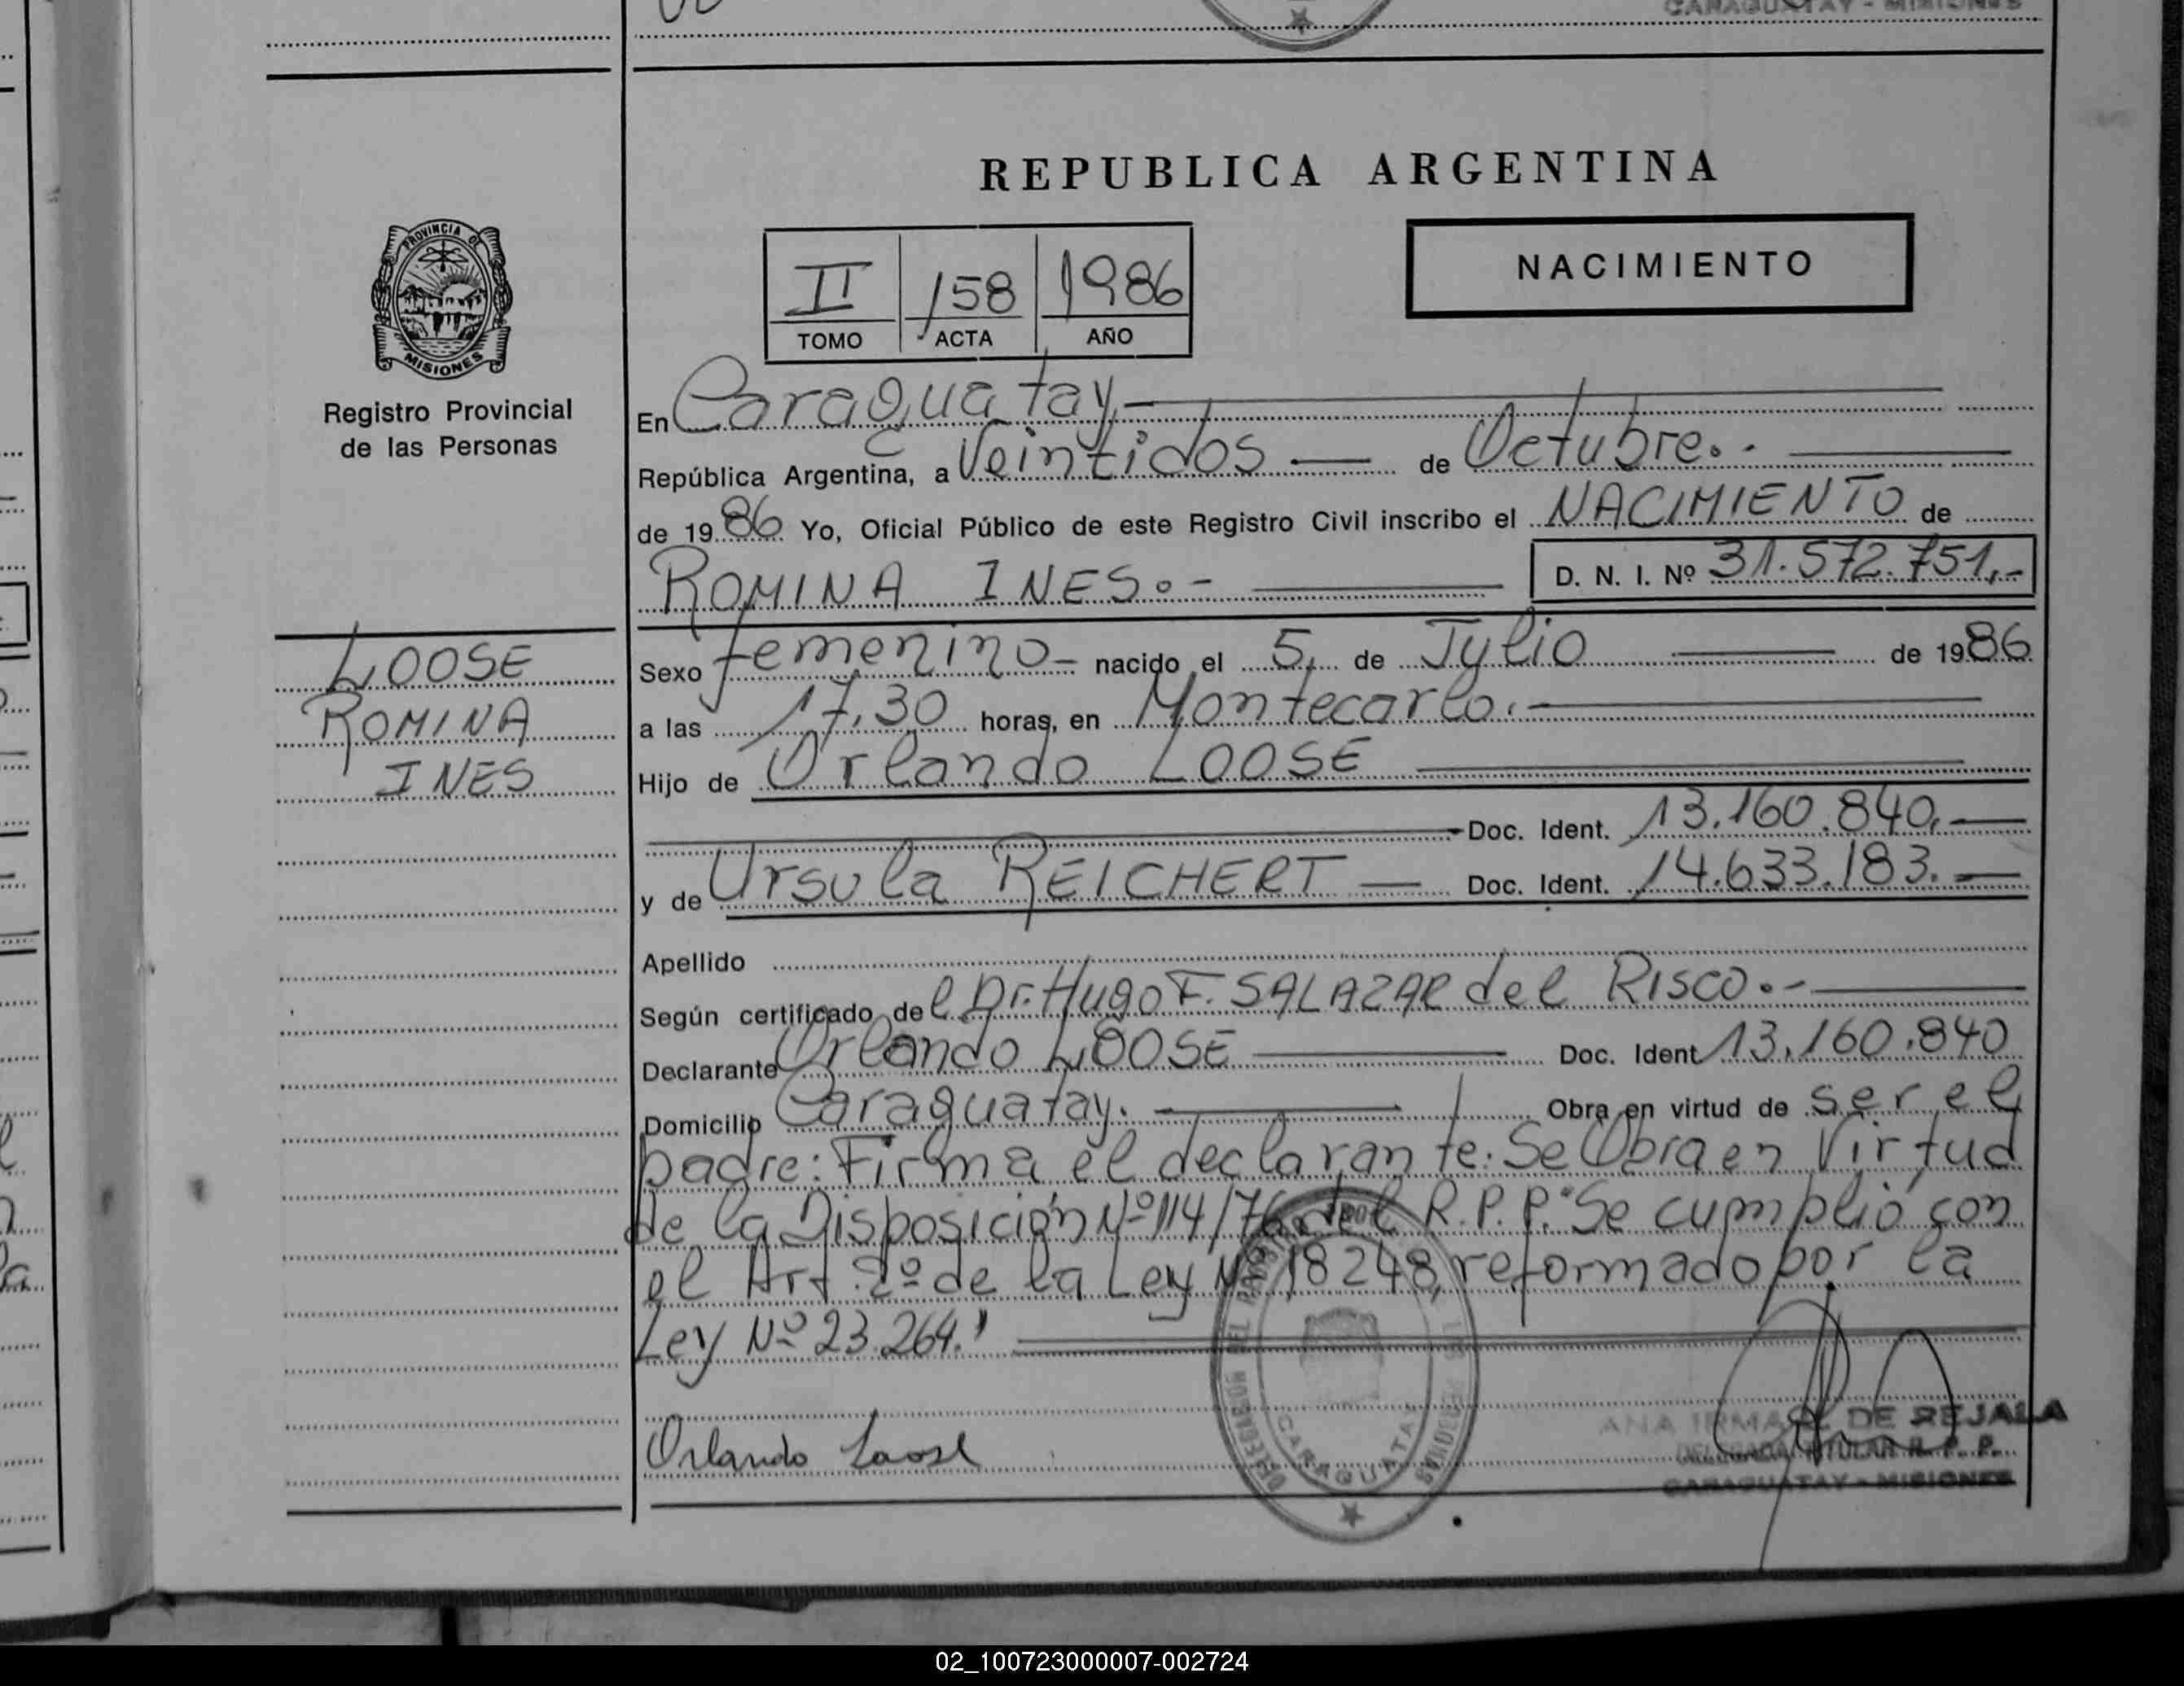 CARAGUATAY - MISIONES
REPUBLICA ARGENTINA
PROVINCIA DE
MISIONES
Registro Provincial
de las Personas
II 158 1986
TOMO ACTA AÑO
NACIMIENTO
En Caraguatay.-
República Argentina, a Veintidos de Octubre.-
de 1986 Yo, Oficial Público de este Registro Civil inscribo el NACIMIENTO de
ROMINA INES.- D. N. I. Nº 31.572.751.-
LOOSE
ROMINA
INES
Sexo femenino- nacido el 5, de Julio de 1986
a las 17,30 horas, en Montecarlo.-
Hijo de Orlando LOOSE
Doc. Ident. 13.160.840.-
y de Ursula REICHERT Doc. Ident. 14.633.183.-
Apellido
Según certificado del Dr. Hugo F. SALAZAR del RISCO.-
Declarante Orlando LOOSE Doc. Ident 13.160.840
Domicilio Caraguatay.- Obra en virtud de ser el
padre: Firma el declarante. Se Obra en Virtud
de la Disposición Nº 114/76 del R.P.P. "Se cumplió con
el Art. 2º de la Ley Nº 18248, reformado por la
Ley Nº 23.264."
Orlando Loose
CARAGUATAY
ANA IRMA DE REJALA
DELEGADA TITULAR R. P. P.
CARAGUATAY - MISIONES
02_100723000007-002724